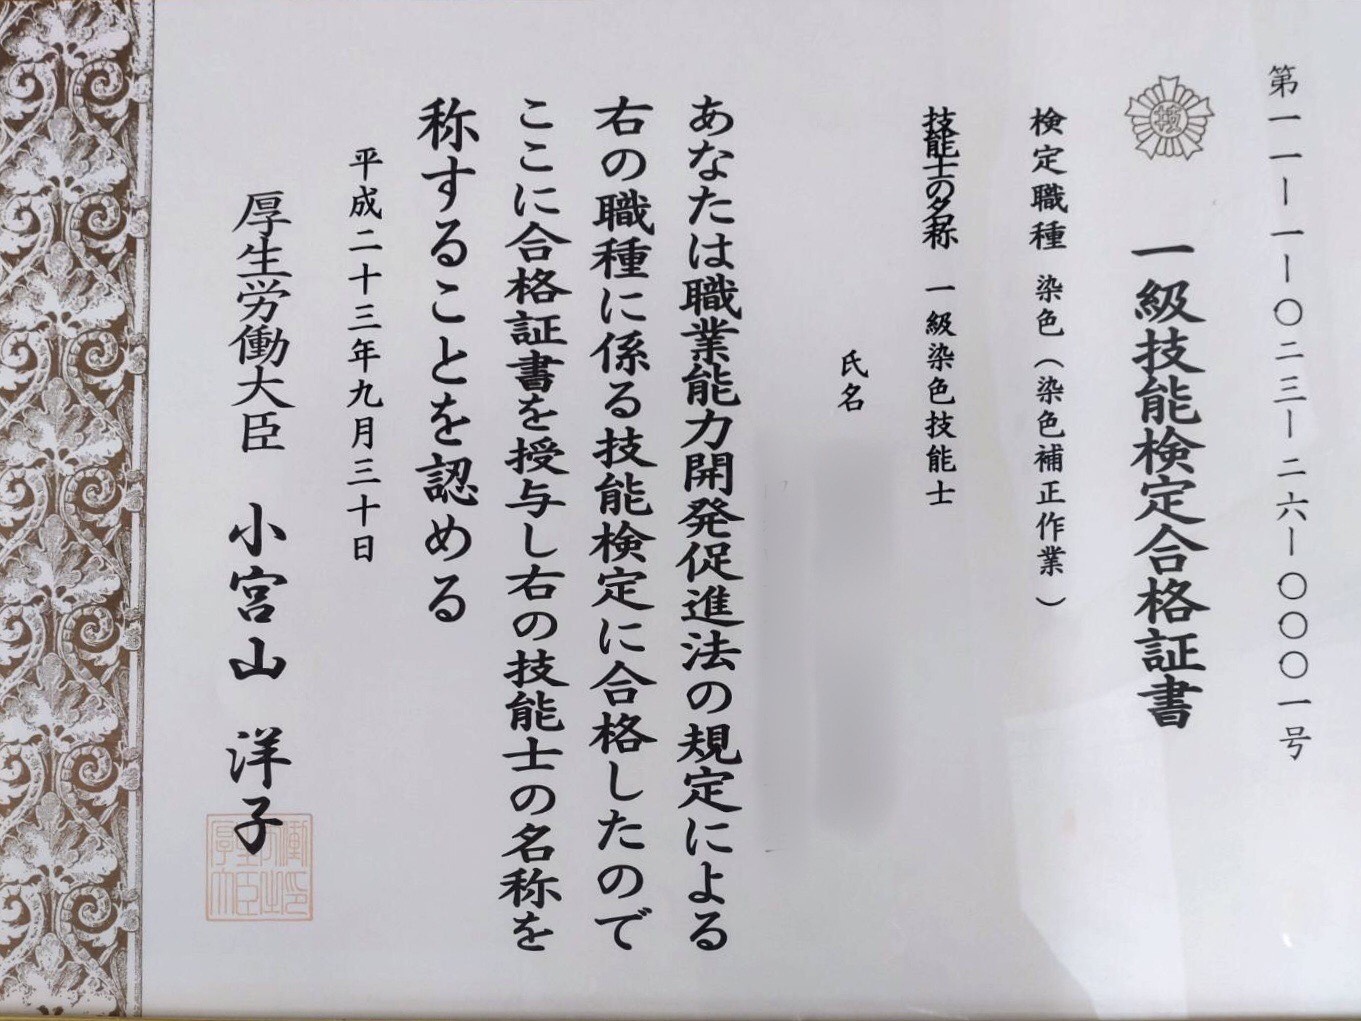 第一一一一一〇二三一二六一〇〇〇一号
一級技能検定合格証書
検定職種 染色（染色補正作業）
技能士の名称 一級染色技能士
氏名
あなたは職業能力開発促進法の規定による
右の職種に係る技能検定に合格したので
ここに合格証書を授与し右の技能士の名称を
称することを認める
平成二十三年九月三十日
厚生労働大臣 小宮山 洋子